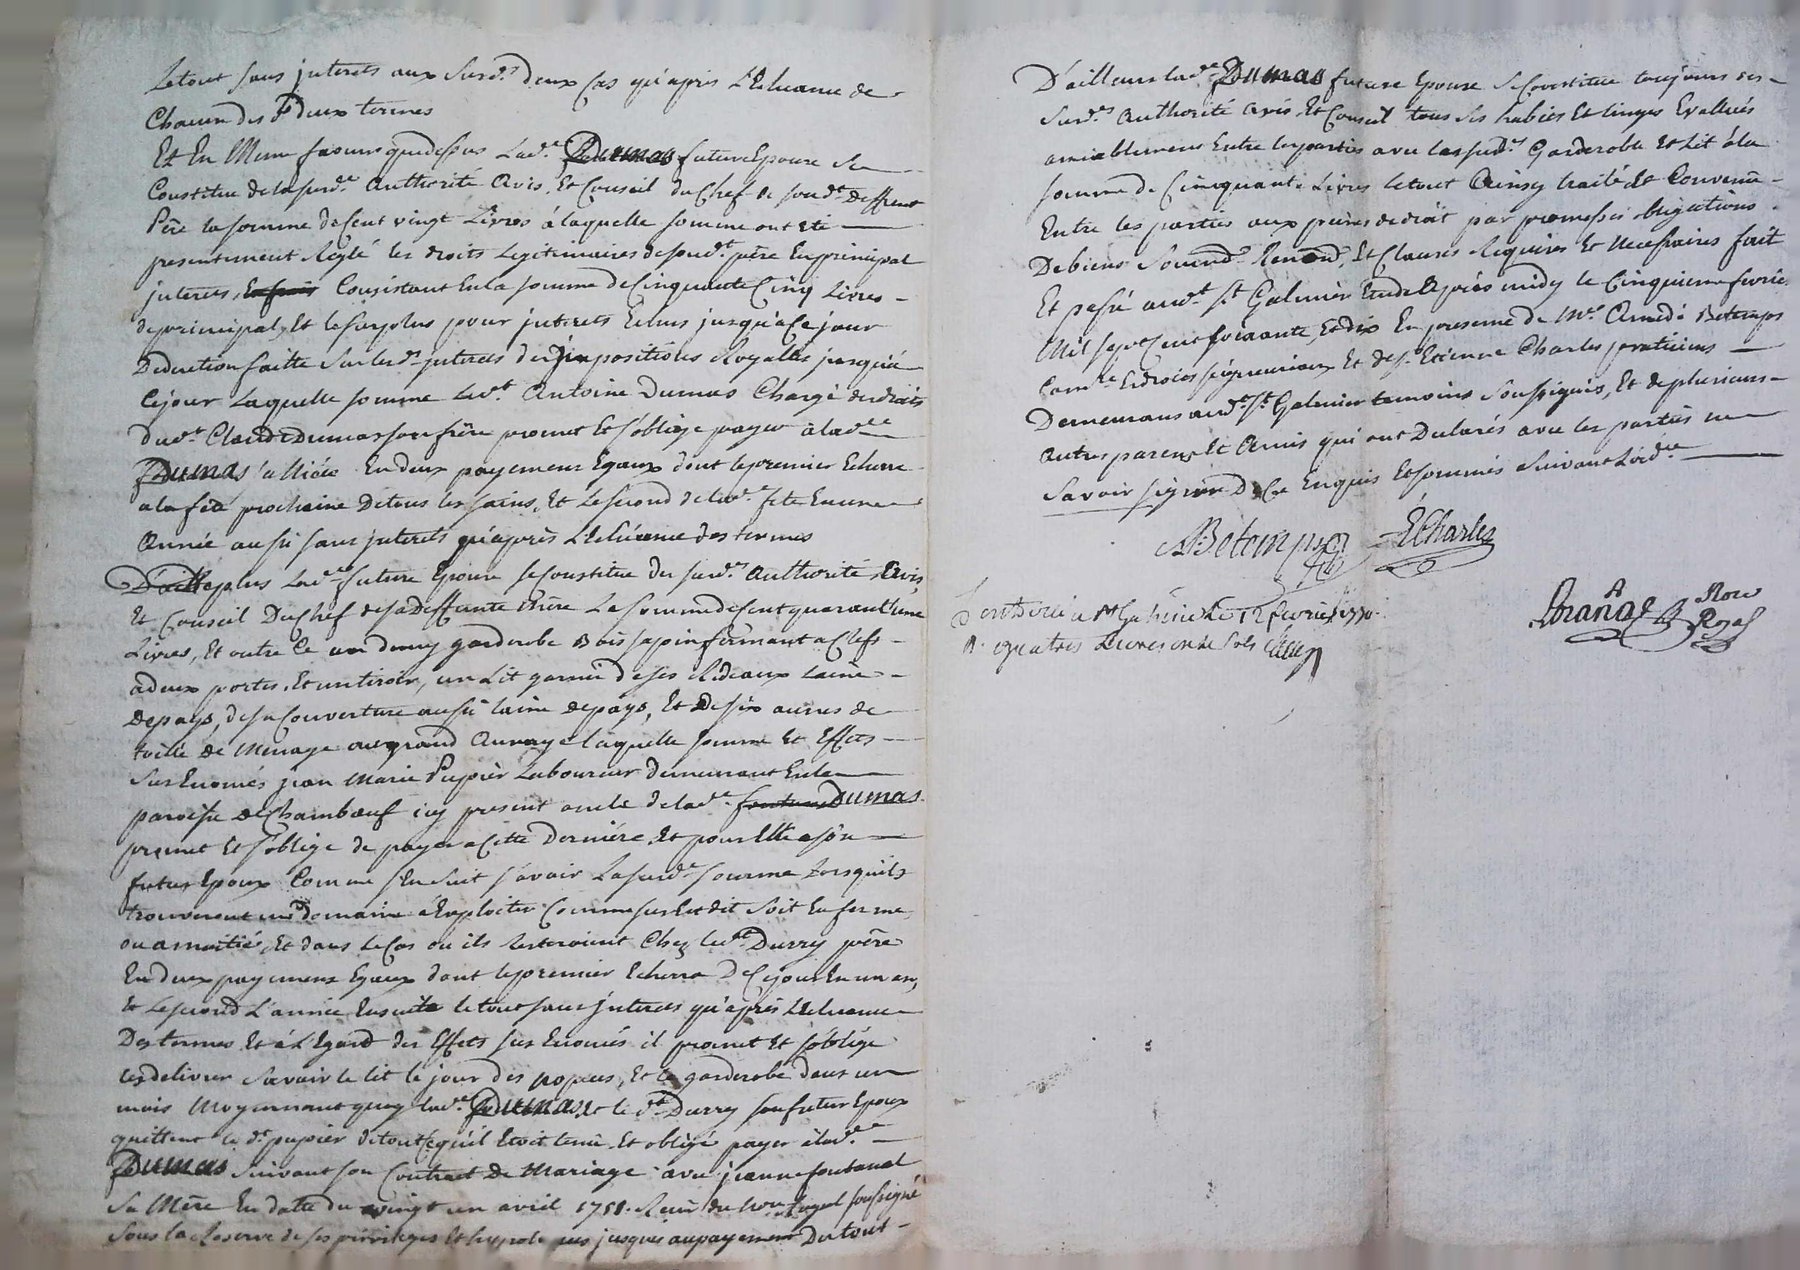 Le tout sans jnterets aux surd.ts deux Cas qu'après L'Echeance de
Chacun des d.ts deux termes
Et En Meme faveurs que dessus Lad.e Dumas future Epouse se
Constitue de la surd.e Authorité Avis, Et Conseil du Chef de soud.t Deffunt
Père la somme de Cent vingt Livres à laquelle somme ont eté
presentement Reglé les droits Legitimaires de soud.t père En principal
jnterets, Et frais Consistant En la somme de Cinquante Cinq Livres
de principal, Et le surplus pour jnterets Echus jusqu'à Ce jour
Deduction faitte sur lesd. jnterets des jmpositions Royalles jusqu'à
Ce jour Laquelle somme Led.t Antoine Dumas Chargé des droits
dud.t Claude Dumas son frère promet Et s'oblige payer à lad.e
Dumas sa Nièce En deux payements Egaux dont le premier Echerra
a la fête prochaine De tous les saints, Et le second de lad.e fete En une
Année aussi sans jnterets qu'après L'Echéance des termes
De plus Lad.e future Epouse se Constitue des surd.es Authorité, Avis,
Et Conseil Du Chef de sa deffunte Mère La somme de Cent quarante une
Livres, Et outre Ce un demy garderobe Bois sapin fermant a Clefs
a deux portes, Et un tiroir, un Lit garni de ses Rideaux laine
de pays, de sa Couverture aussi laine de pays, Et de six aunes de
toile de Menage au grand Aunage laquelle somme Et Effets
sus Enoncés jean Marie Pupier Laboureur demeurant En la
paroisse de Chambœuf icy present oncle de lad.e Dumas
promet Et s'oblige de payer a Cette Dernière, Et pour Elle a son
futur Epoux Comme s'En suit savoir La surd.e somme Lorsqu'ils
trouveront un domaine à Exploiter Comme sus Est dit soit En ferme,
ou a moitié, Et dans Le Cas ou ils resteroient Chez led.t Durry père
En deux payemens Egaux dont le premier Echerra De Ce jour En un an,
Et Le second L'année Ensuite le tout sans jnterets qu'après L'Echeance
Des termes Et à L'Egard des Effets sus Enoncés il promet Et s'oblige
les delivrer savoir le lit le jour des nopces, Et le garderobe dans un
mois Moyennant quoy lad.e Dumas, Et le d.t Durry son futur Epoux
quittent le d.t pupier de tout Ce qu'il Etoit tenu Et obligé payer à lad.e
Dumas suivant son Contract de Mariage avec jeanne fontanel
Sa Mère En datte du vingt un avril 1758. Reçu du no.re Royal soussigné
Sous la Reserve de ses privileges Et hypoteques jusques au payement Du tout
D'ailleurs lad.e Dumas future Epouse se Constitue toujours des
surd.es Authorité Avis, Et Conseil tous ses habits Et linges Evallués
amiablement Entre les parties avec les sud.ts Garderobe Et Lit à la
somme de Cinquante Livres le tout Ainsy traité Et Convenu
Entre les parties aux peines de droit par promesses obligations
De biens soumd.s Renond.s, Et Clauses Requises Et Necessaires fait
Et passé aud.t S.t Galmier Etude Après midy le Cinquieme fevrier
Mil sept Cent soixante, Et dix En presence de M.e Amedé Betemps
Com.re Es droits seigneuriaux Et de s.r Etienne Charles praticiens
Demeurans aud.t S.t Galmier temoins Soussignés, Et de plusieurs
Autres parens Et Amis qui ont Declarés avec les parties ne
Savoir signer De Ce Enquis Et sommés suivant L'ord.ce
ABetemps ECharles
Nore
Royal
Controllé a St Galmier Le 12 fevrier 1770.
R. quatres Livres onze sols